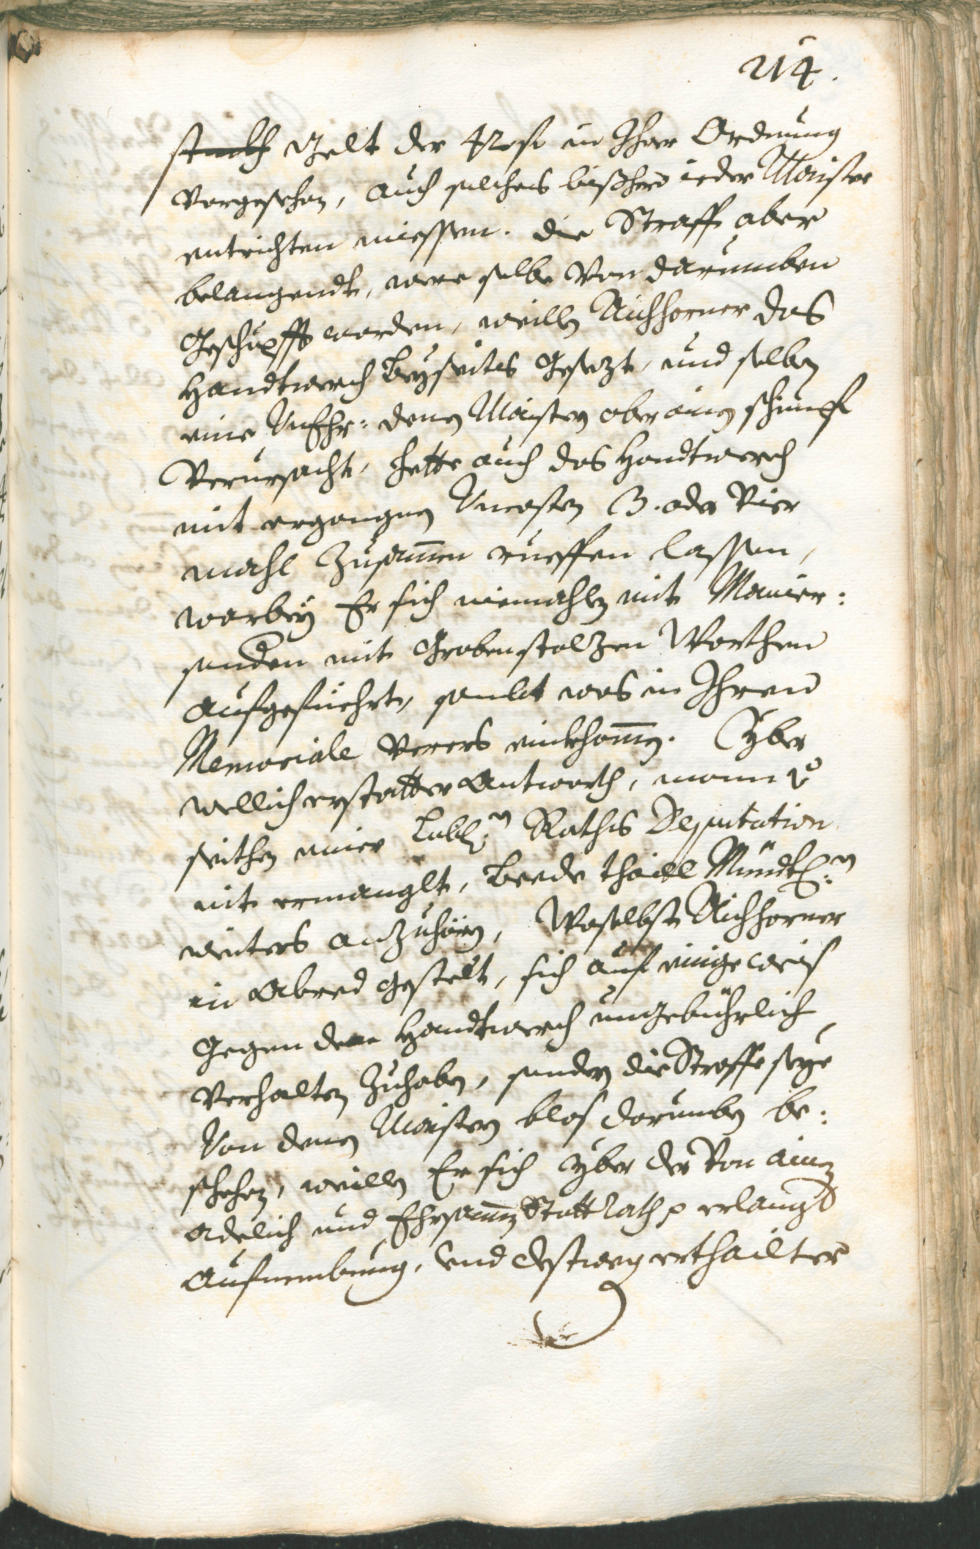 214.
Gelt der in Ihrer Ordnung
vorgesehen, auch solches bißhero ieder Maister
entrichten miessen. die Straff aber
belangendt, were selbe Von darumben
Geschöpfft worden, weillen Aichhorner das
Handtwerch Beyseits Gesezt, und selben
eine Unehr: denen Maistern aber ainen schimpf
Verursacht, hette auch das Handtwerch
mit ergangnen Uncosten 3. oder Vier
mahl Zusamen rueffen lassen,
warbey Er sich niemahlen mit Manier:
sondern mit Grobenstolzen Worthen
aufgefüehrt, sambt was in Ihren
Memoriale verers einkhomen. Yber
wellich erstatter Antworth, mann
seithen einer Lobl: Raths Deputation
nit ermanglt, Beede thaill Mündtl:
weiters anzuhörn, Woselbst Aichhorner
in Abred gestelt, sich auf einige weis
Gegen dem Handtwerch ungebührlich
Verhalten Zuhaben, sondern die Straffe seye
Von denen Maistern blos darumben be:
schehen, weillen Er sich yber der Von ainem
Adelich und Ehrsamen Statt Rath erlangte
Aufnembung, und destweg erthailter